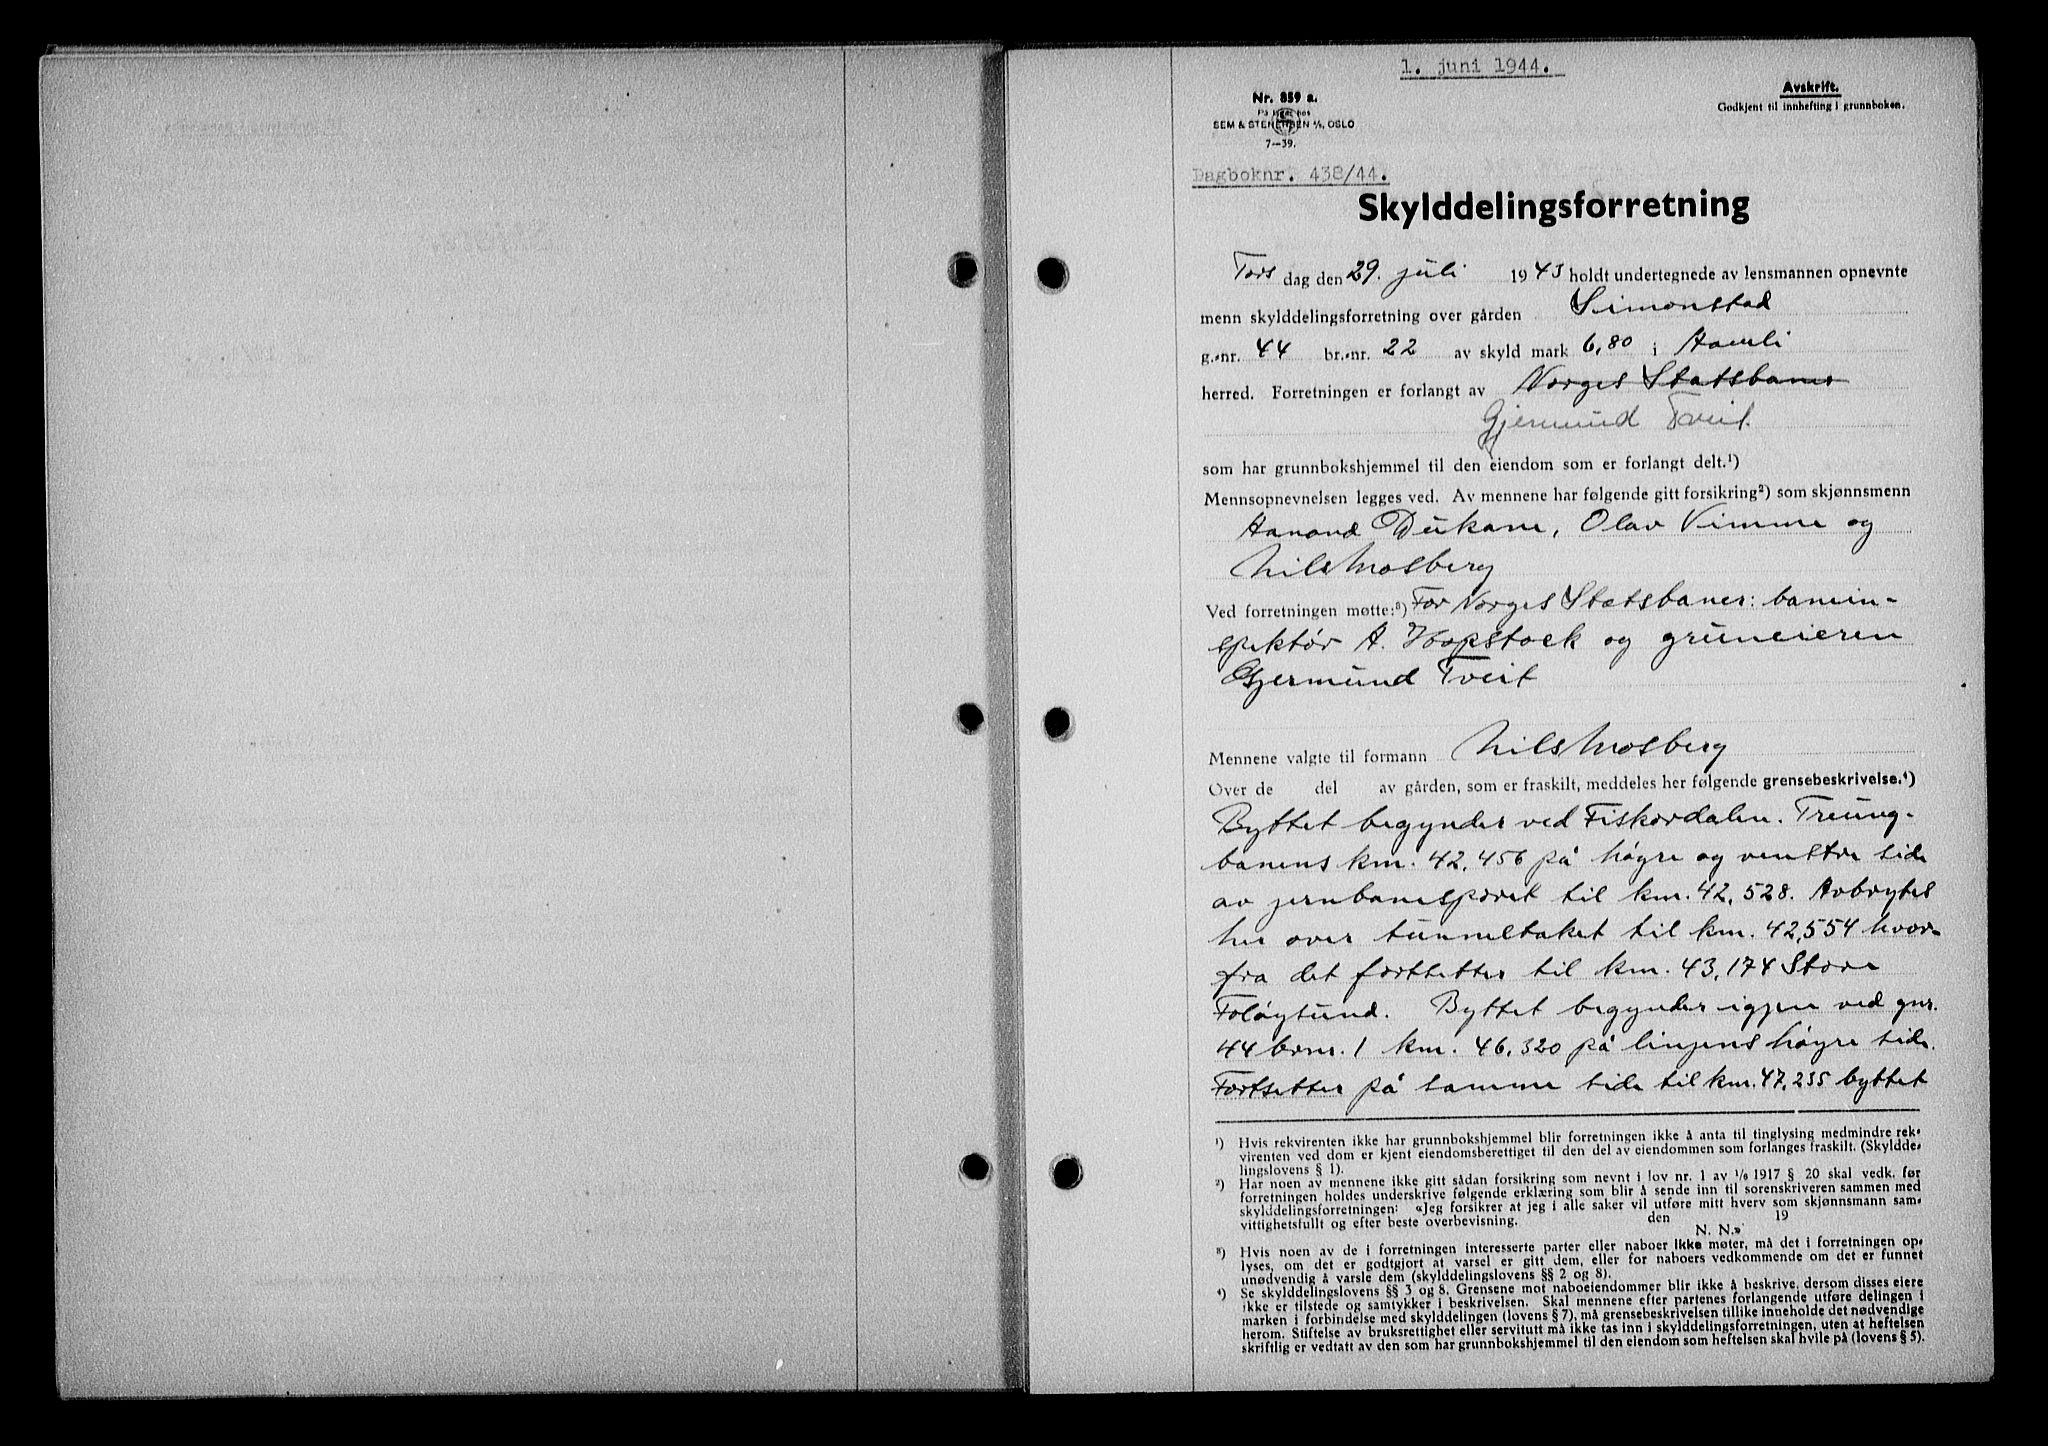 1. juni 1944.
Avskrift.
Godkjent til innhefting i grunnboken.
Nr. 859 a.
På lager hos
SEM & STENERSEN A/S, OSLO
7-39.
Dagboknr. 438/44.
Skylddelingsforretning
Tors dag den 29. juli 1943 holdt undertegnede av lensmannen opnevnte
menn skylddelingsforretning over gården Simonstad
g.-nr. 44 br.-nr. 22 av skyld mark 6,80 i Aamli
herred. Forretningen er forlangt av Norges Statsbaner
Gjermund Tveit.
som har grunnbokshjemmel til den eiendom som er forlangt delt.¹)
Mennsopnevnelsen legges ved. Av mennene har følgende gitt forsikring²) som skjønnsmenn
Aanond Dukane, Olav Vimme og
Nils Mosberg
Ved forretningen møtte:³) For Norges Statsbaner: banein-
spektør A. Hopstock og gruneieren
Gjermund Tveit
Mennene valgte til formann Nils Mosberg
Over de del av gården, som er fraskilt, meddeles her følgende grensebeskrivelse.⁴)
Byttet begynder ved Fiskordalen. Treung-
banens km. 42,456 på høgre og venstre side
av jernbanesporet til km. 42,528. Avbrytes
her over tunneltaket til km. 42,554 hvor-
fra det fortsetter til km. 43,174 Store
Foløysund. Byttet begynder igjen ved gnr.
44 brnr. 1 km. 46,320 på linjens høgre side.
Fortsetter på samme side til km. 47,235 byttet
¹) Hvis rekvirenten ikke har grunnbokshjemmel blir forretningen ikke å anta til tinglysing medmindre rek-
virenten ved dom er kjent eiendomsberettiget til den del av eiendommen som forlanges fraskilt. (Skyldde-
lingslovens § 1).
²) Har noen av mennene ikke gitt sådan forsikring som nevnt i lov nr. 1 av 1/6 1917 § 20 skal vedk. før
forretningen holdes underskrive følgende erklæring som blir å sende inn til sorenskriveren sammen med
skylddelingsforretningen: «Jeg forsikrer at jeg i alle saker vil utføre mitt hverv som skjønnsmann sam-
vittighetsfullt og efter beste overbevisning. den 19
N. N.»
³) Hvis noen av de i forretningen interesserte parter eller naboer ikke møter, må det i forretningen op-
lyses, om det er godtgjort at varsel er gitt dem, eller for naboers vedkommende om det er funnet
unødvendig å varsle dem (skylddelingslovens §§ 2 og 8).
⁴) Se skylddelingslovens §§ 3 og 8. Grensene mot naboeiendommer blir ikke å beskrive, dersom disses eiere
ikke er tilstede og samtykker i beskrivelsen. Skal mennene efter partenes forlangende utføre delingen i
marken i forbindelse med skylddelingen (lovens § 7), må grensebeskrivelsen tillike inneholde det nødvendige
herom. Stiftelse av bruksrettighet eller servitutt må ikke tas inn i skylddelingsforretningen, uten at heftelsen
skriftlig er vedtatt av den som har grunnbokshjemmel til den eiendom som heftelsen skal hvile på (lovens § 5).